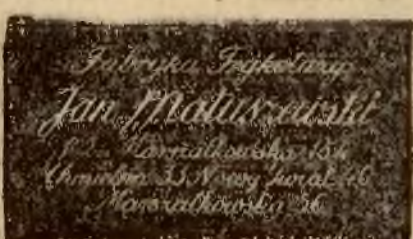 Fabryka Trykotaży
Jan Matuszewski
Marszałkowska 154
Chmielna 33 Nowy Świat 46
Marszałkowska 56